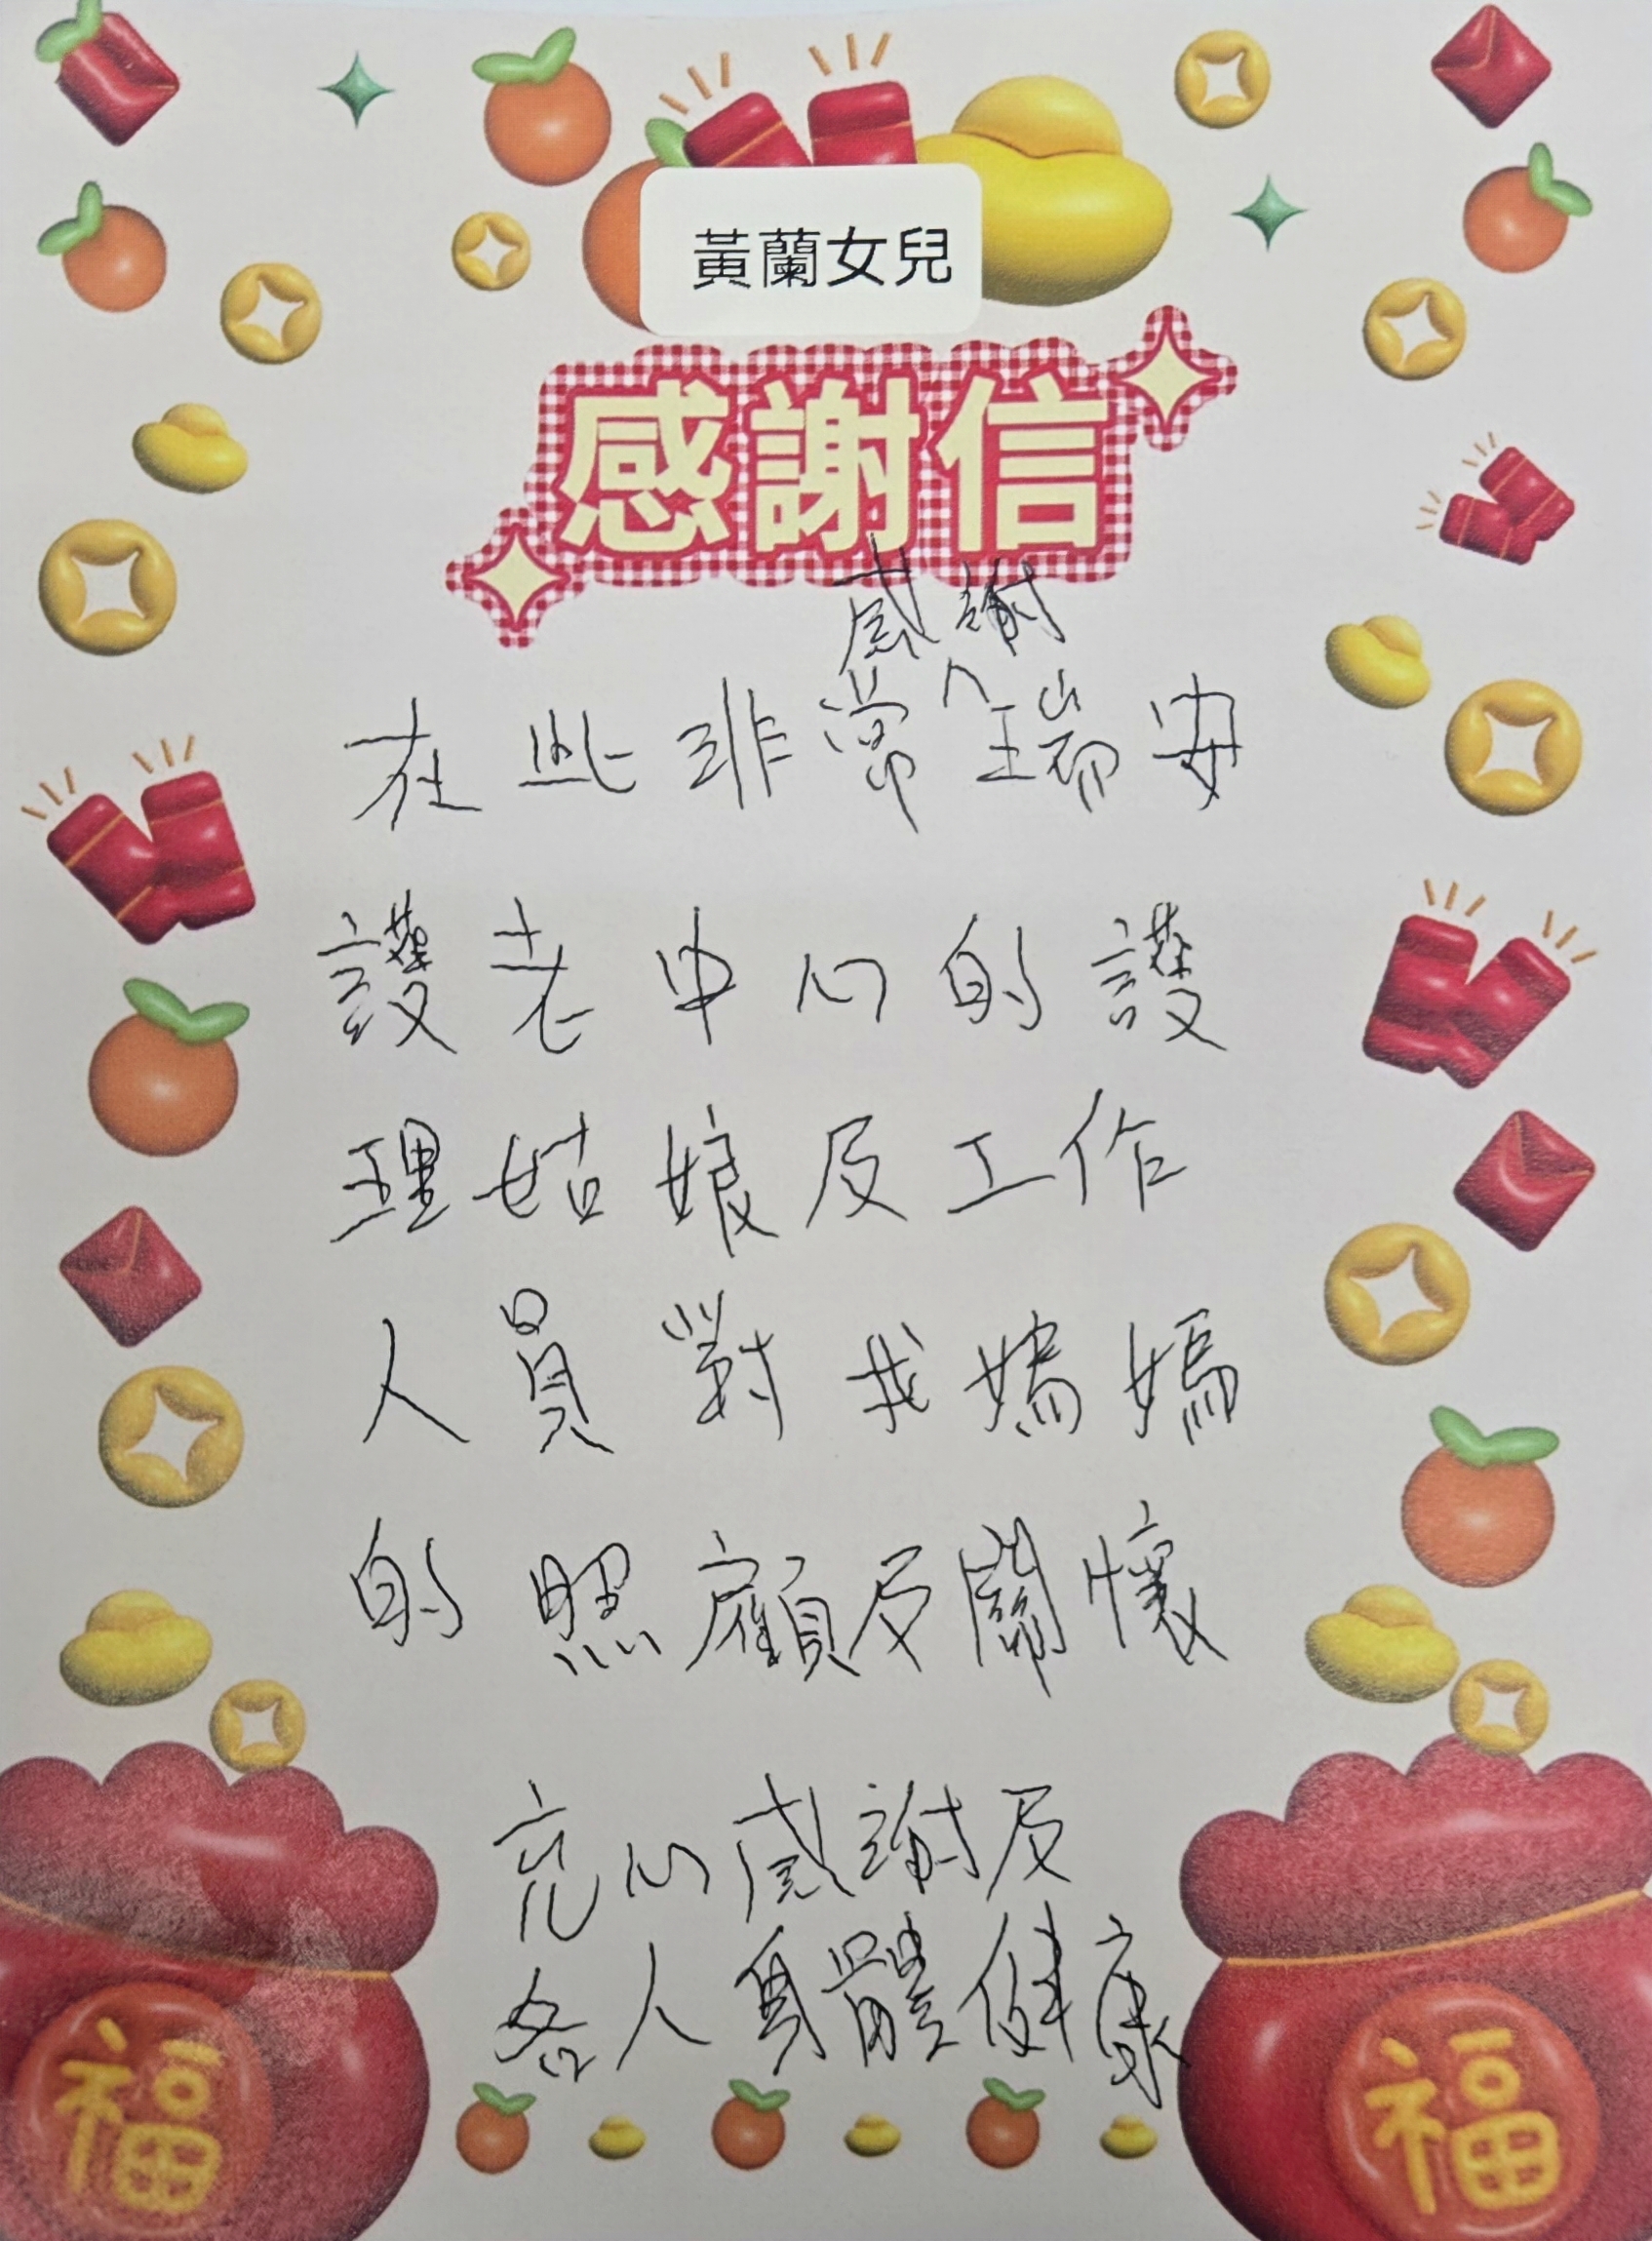 黃蘭女兒
感謝信
感謝
在此非常瑞安
護老中心的護
理姑娘及工作
人員對我媽媽
的照顧及關懷
充心感謝及
各人身體健康
福
福